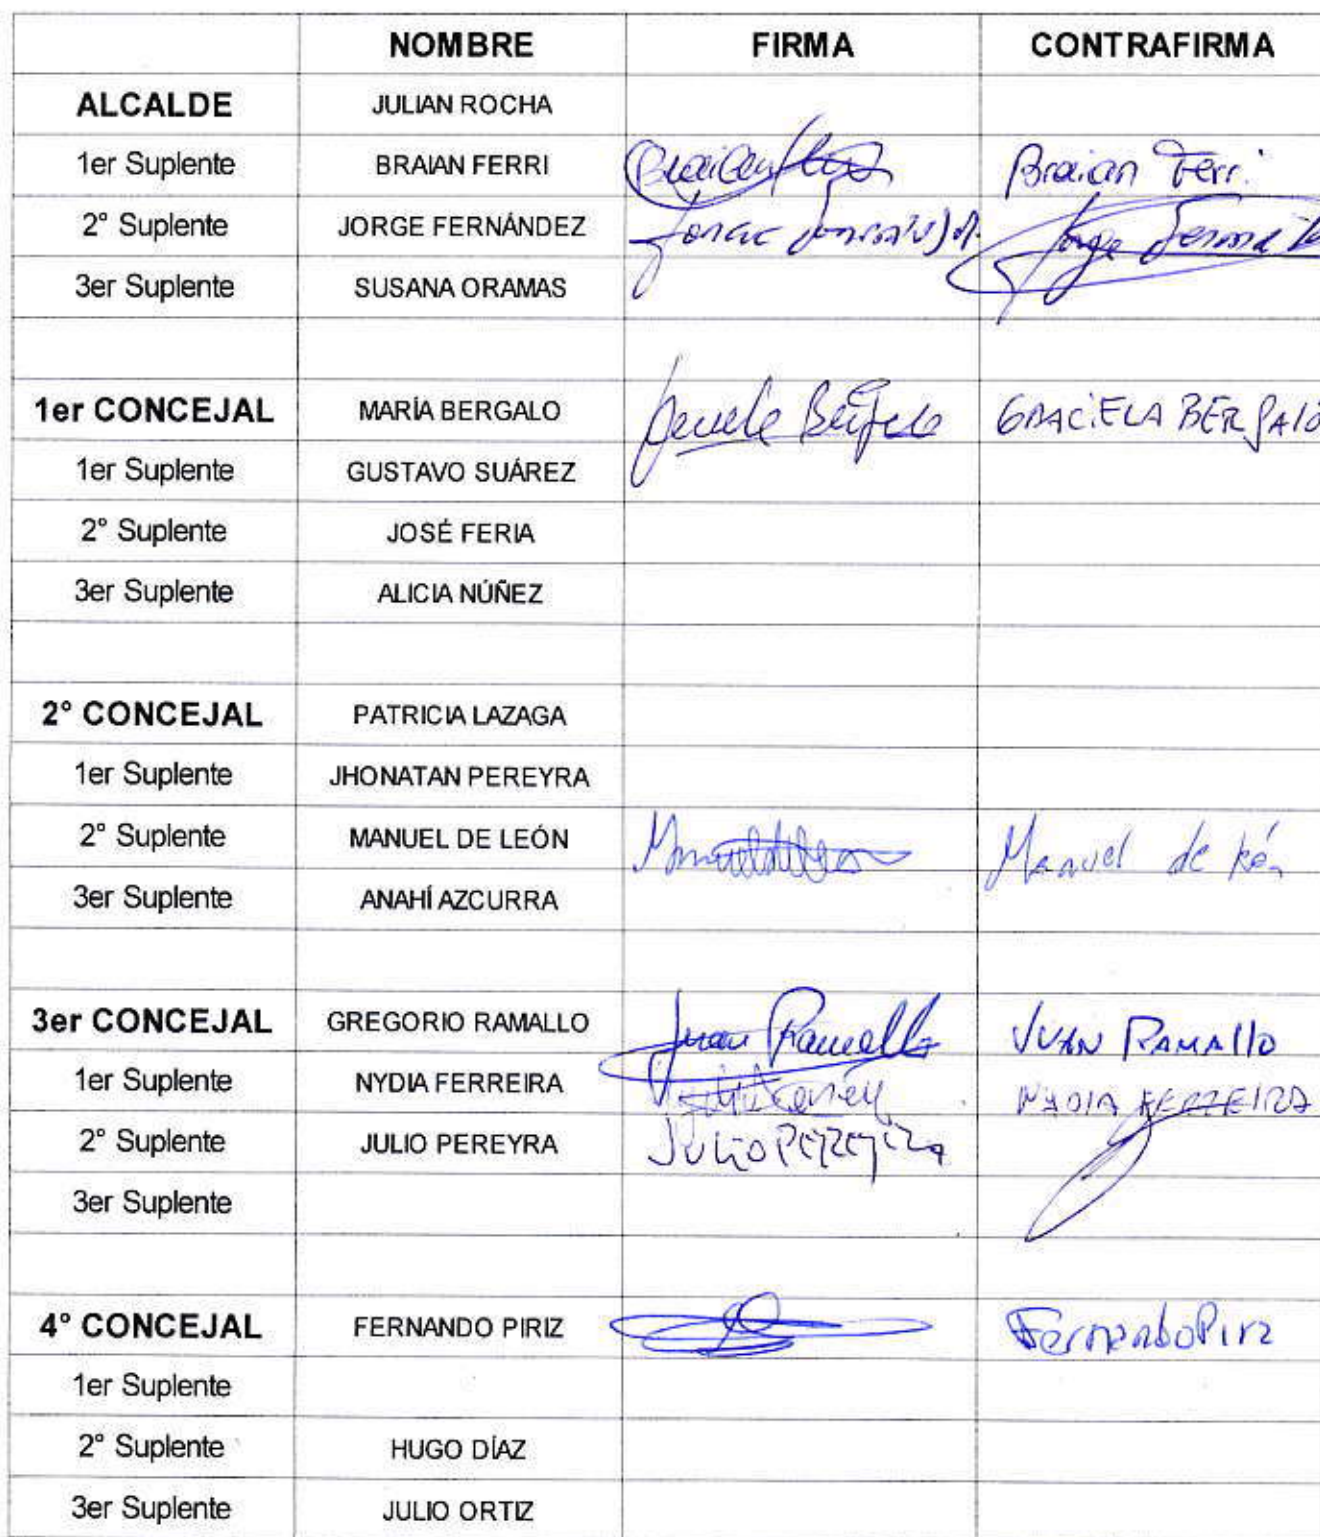 NOMBRE FIRMA CONTRAFIRMA
ALCALDE JULIAN ROCHA
1er Suplente BRAIAN FERRI Braian Ferri
2° Suplente JORGE FERNÁNDEZ Jorge
3er Suplente SUSANA ORAMAS
1er CONCEJAL MARÍA BERGALO GRACIELA BERGALO
1er Suplente GUSTAVO SUÁREZ
2° Suplente JOSÉ FERIA
3er Suplente ALICIA NÚÑEZ
2° CONCEJAL PATRICIA LAZAGA
1er Suplente JHONATAN PEREYRA
2° Suplente MANUEL DE LEÓN Manuel de
3er Suplente ANAHÍ AZCURRA
3er CONCEJAL GREGORIO RAMALLO Juan Ramallo JUAN RAMALLO
1er Suplente NYDIA FERREIRA NYDIA FERREIRA
2° Suplente JULIO PEREYRA JULIO PEREYRA
3er Suplente
4° CONCEJAL FERNANDO PIRIZ Fernando Piriz
1er Suplente
2° Suplente HUGO DÍAZ
3er Suplente JULIO ORTIZ